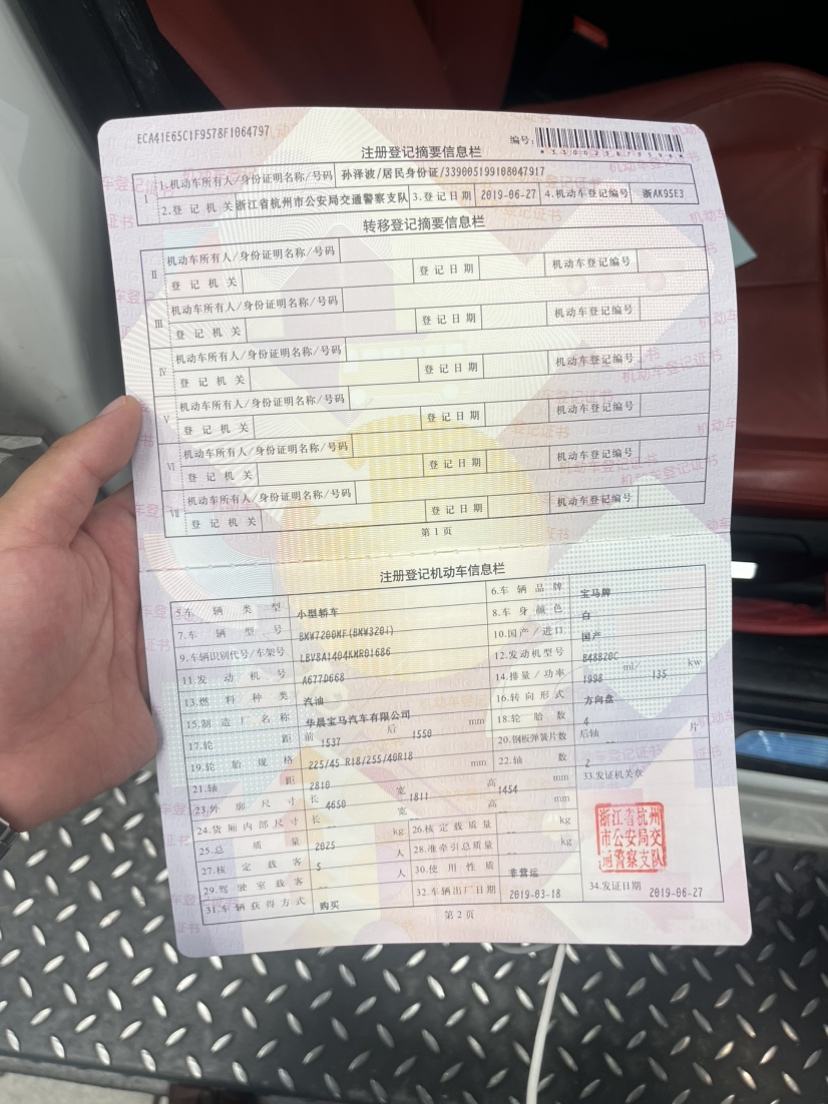 ECA41E65C1F9578F1064797
编号:
注册登记摘要信息栏
Ⅰ 1.机动车所有人/身份证明名称/号码 孙泽波/居民身份证/339005199108047917
2.登记机关 浙江省杭州市公安局交通警察支队 3.登记日期 2019-06-27 4.机动车登记编号 浙AK95E3
转移登记摘要信息栏
Ⅱ 机动车所有人/身份证明名称/号码
登记机关 登记日期 机动车登记编号
Ⅲ 机动车所有人/身份证明名称/号码
登记机关 登记日期 机动车登记编号
Ⅳ 机动车所有人/身份证明名称/号码
登记机关 登记日期 机动车登记编号
Ⅴ 机动车所有人/身份证明名称/号码
登记机关 登记日期 机动车登记编号
Ⅵ 机动车所有人/身份证明名称/号码
登记机关 登记日期 机动车登记编号
Ⅶ 机动车所有人/身份证明名称/号码
登记机关 登记日期 机动车登记编号
第1页
注册登记机动车信息栏
5.车辆类型 小型轿车 6.车辆品牌 宝马牌
7.车辆型号 BMW7200MF(BMW320i) 8.车身颜色 白
9.车辆识别代号/车架号 LBV8A1404KMR01686 10.国产/进口 国产
11.发动机号 A677D668 12.发动机型号 B48B20C
13.燃料种类 汽油 14.排量/功率 1998 ml/ 135 kw
15.制造厂名称 华晨宝马汽车有限公司 16.转向形式 方向盘
17.轮距 前 1537 后 1550 mm 18.轮胎数 4
19.轮胎规格 225/45 R18/255/40R18 20.钢板弹簧片数 后轴 -- 片
21.轴距 2810 mm 22.轴数 2
23.外廓尺寸 长 4650 宽 1811 高 1454 mm 33.发证机关章
24.货厢内部尺寸 长 -- 宽 高 mm
25.总质量 2025 kg 26.核定载质量 -- kg
27.核定载客 5 人 28.准牵引总质量 -- kg
29.驾驶室载客 -- 人 30.使用性质 非营运
浙江省杭州
市公安局交
通警察支队
31.车辆获得方式 购买 32.车辆出厂日期 2019-03-18 34.发证日期 2019-06-27
第2页